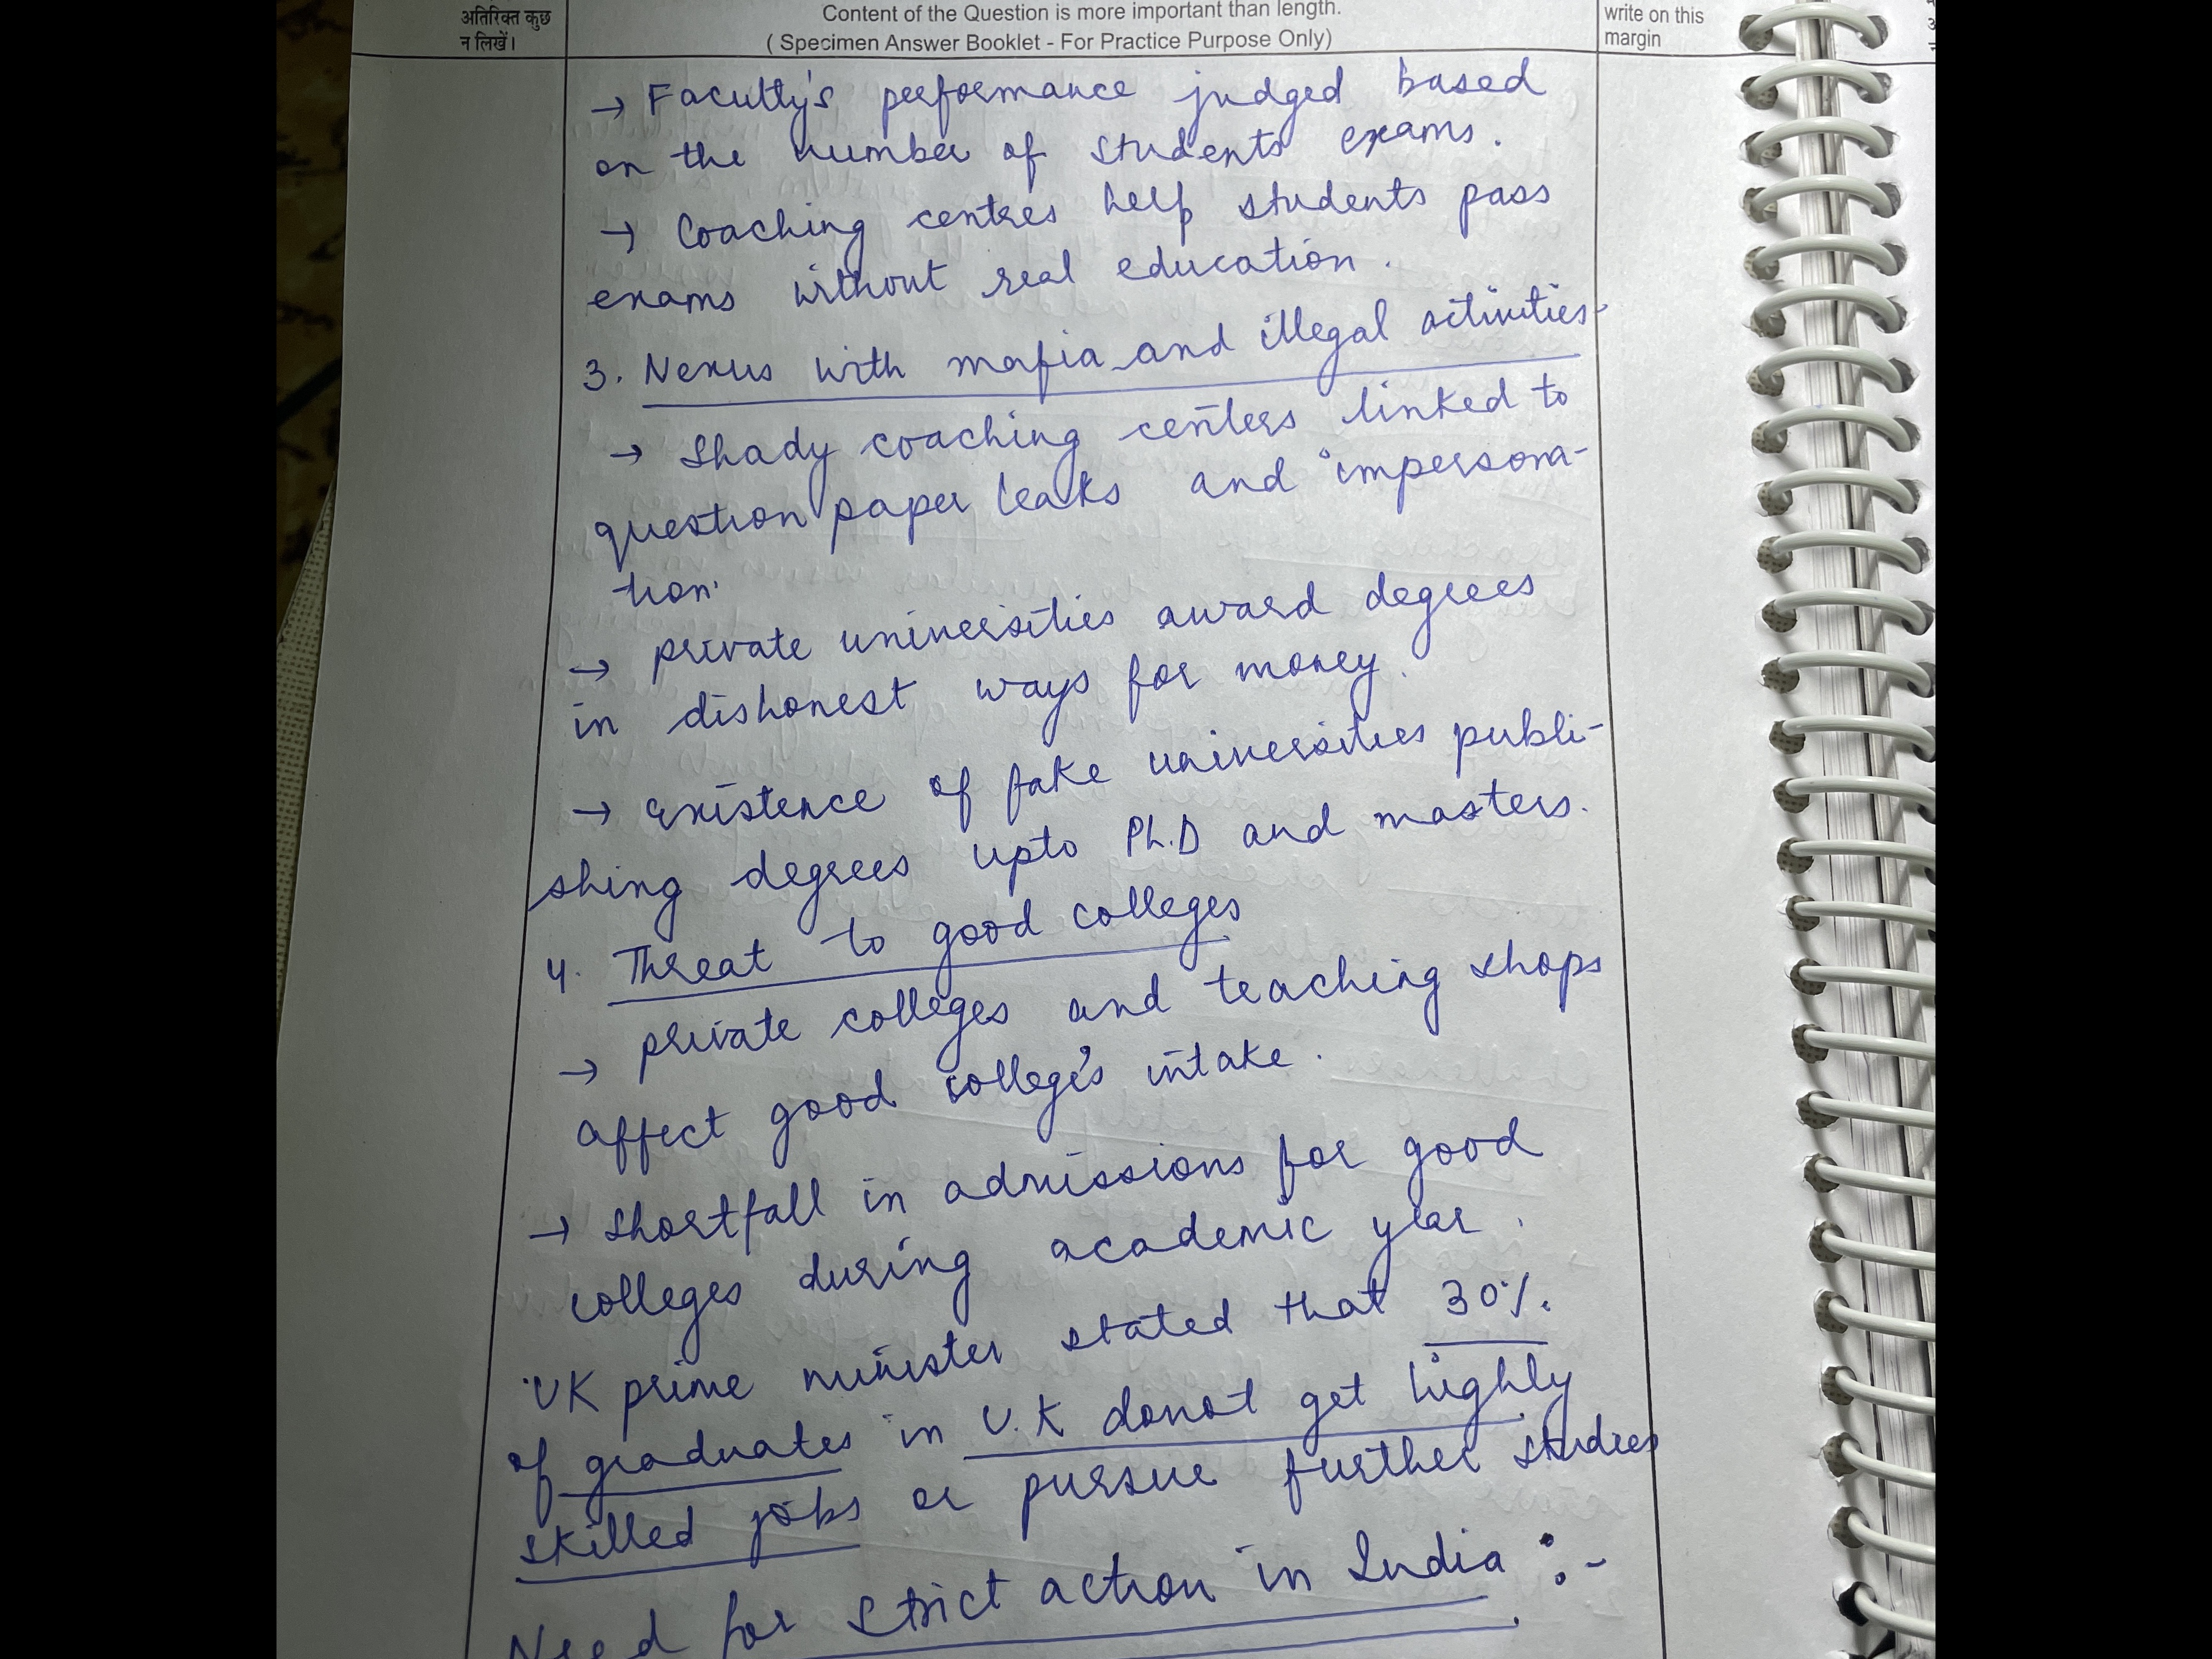 अतिरिक्त कुछ
न लिखें।
Content of the Question is more important than length.
( Specimen Answer Booklet - For Practice Purpose Only)
write on this
margin
→ Faculty's performance judged based
on the number of students exams.
→ Coaching centres help students pass
exams without real education.
3. Nexus with mafia and illegal activities-
→ Shady coaching centers linked to
question paper leaks and impersona-
tion.
→ private universities award degrees
in dishonest ways for money.
→ Existence of fake universities publi-
shing degrees upto Ph.D and masters.
4. Threat to good colleges
→ private colleges and teaching shops
affect good college's intake.
→ shortfall in admissions for good
colleges during academic year.
UK prime minister stated that 30%
of graduates in U.K donot get highly
skilled jobs or pursue further studies
Need for strict action in India :-